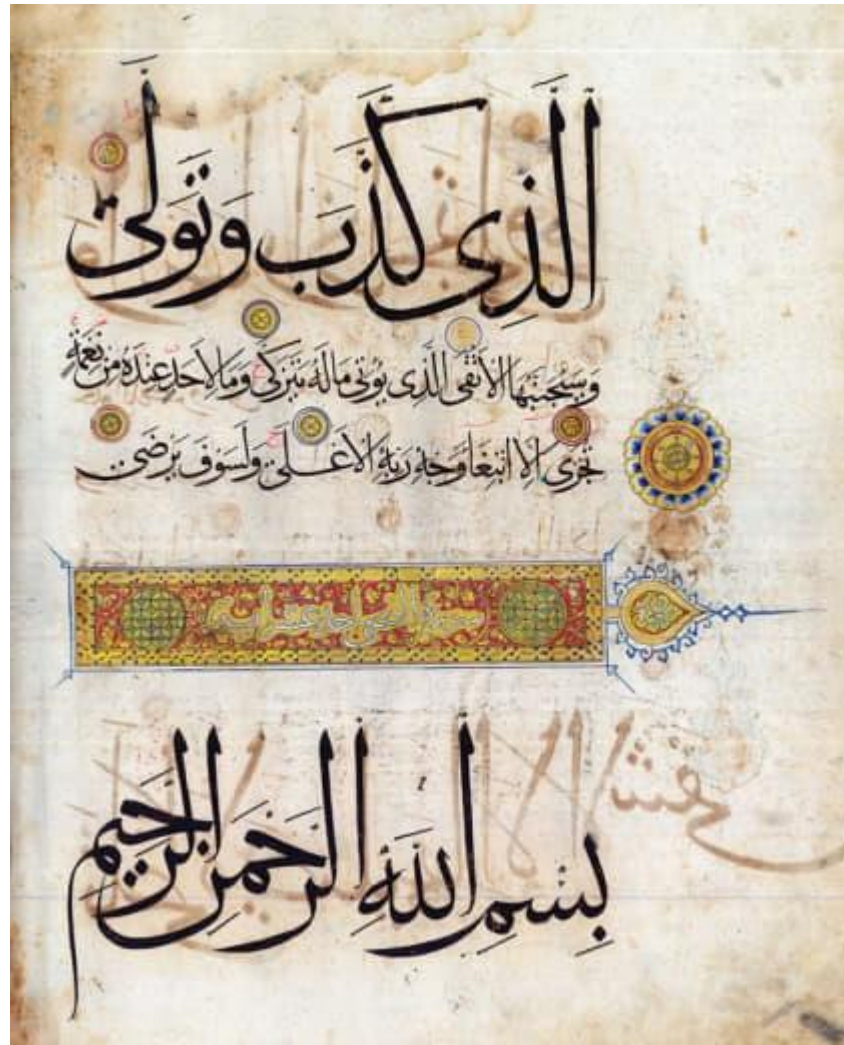 الَّذِى كَذَّبَ وَتَوَلَّى
وَسَيُجَنَّبُهَا الْأَتْقَى الَّذِى يُؤْتِى مَالَهُ يَتَزَكَّى وَمَا لِأَحَدٍ عِنْدَهُ مِنْ نِعْمَةٍ
تُجْزَى إِلَّا ابْتِغَاءَ وَجْهِ رَبِّهِ الْأَعْلَى وَلَسَوْفَ يَرْضَى
سورة الضحى احد عشر اية
بِسْمِ اللَّهِ الرَّحْمَنِ الرَّحِيمِ